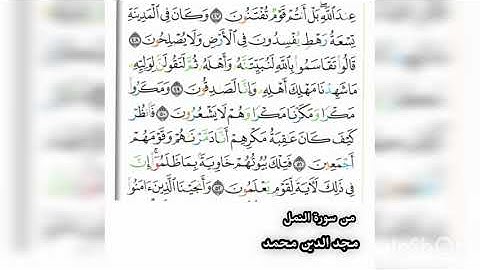 عِندَ ٱللَّهِۖ بَلۡ أَنتُمۡ قَوۡمٞ تُفۡتَنُونَ ٤٧ وَكَانَ فِي ٱلۡمَدِينَةِ
تِسۡعَةُ رَهۡطٖ يُفۡسِدُونَ فِي ٱلۡأَرۡضِ وَلَا يُصۡلِحُونَ ٤٨
قَالُواْ تَقَاسَمُواْ بِٱللَّهِ لَنُبَيِّتَنَّهُۥ وَأَهۡلَهُۥ ثُمَّ لَنَقُولَنَّ لِوَلِيِّهِۦ
مَا شَهِدۡنَا مَهۡلِكَ أَهۡلِهِۦ وَإِنَّا لَصَٰدِقُونَ ٤٩ وَمَكَرُواْ
مَكۡرٗا وَمَكَرۡنَا مَكۡرٗا وَهُمۡ لَا يَشۡعُرُونَ ٥٠ فَٱنظُرۡ
كَيۡفَ كَانَ عَٰقِبَةُ مَكۡرِهِمۡ أَنَّا دَمَّرۡنَٰهُمۡ وَقَوۡمَهُمۡ
أَجۡمَعِينَ ٥١ فَتِلۡكَ بُيُوتُهُمۡ خَاوِيَةَۢ بِمَا ظَلَمُوٓاْۚ إِنَّ
فِي ذَٰلِكَ لَأٓيَةٗ لِّقَوۡمٖ يَعۡلَمُونَ ٥٢ وَأَنجَيۡنَا ٱلَّذِينَ ءَامَنُواْ
من سورة النمل
مجد الدين محمد